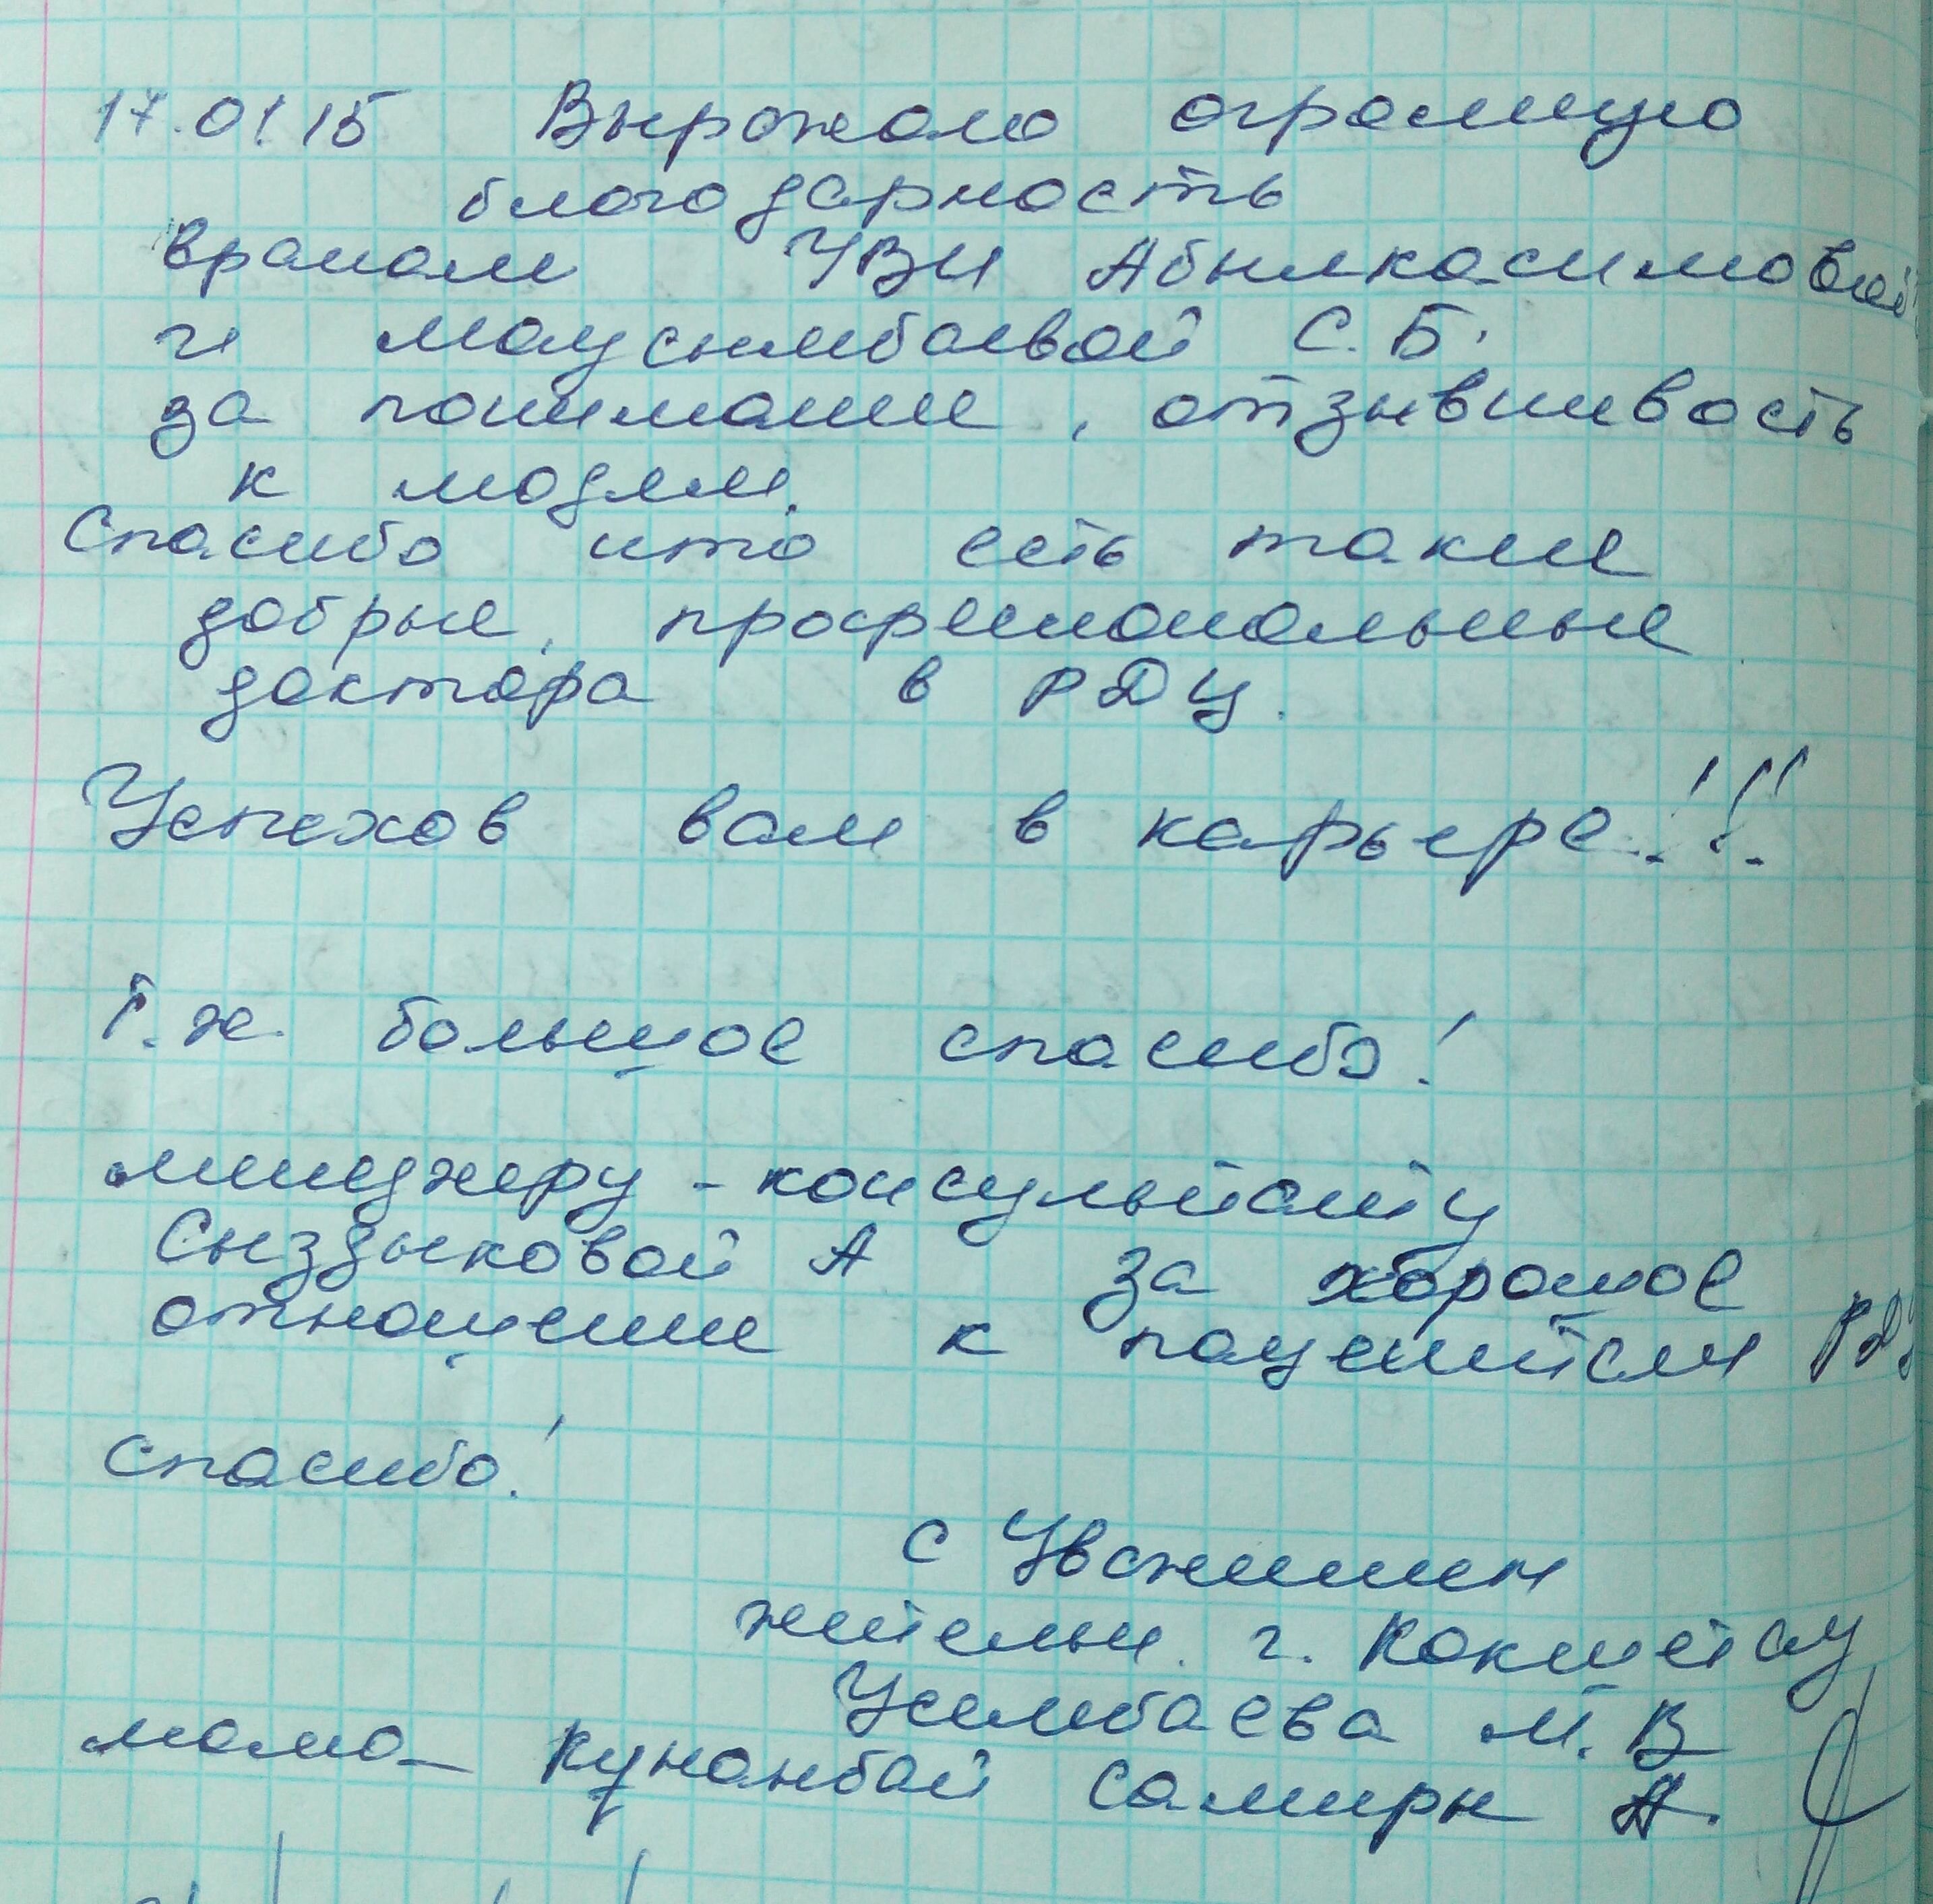 17.01.15 Выражаю огромную
благодарность
врачам УВИ Абылкасимовой
и Маусымбаевой С.Б.
за понимание, отзывчивость
к людям.
Спасибо что есть такие
добрые, профессиональные
доктора в РДЦ.
Успехов вам в карьере!!!
Т.ж. большое спасибо!
менеджеру - консультанту
Сыздыковой А за хорошое
отношение к пациентам РДЦ
спасибо!
с Уважением
жительн. г. Кокшетау
Усембаева М.В
мама Кунанбай Самиры А.